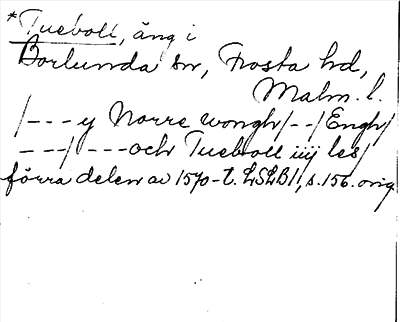 *Tueboll, äng i
Borlunda sn, Frosta hd,
Malm. l.
/--- y Norre wongh/--/Engh/
---/---och Tueboll iiij les/
förra delen av 1570-t. LSLB II, s. 156. orig.